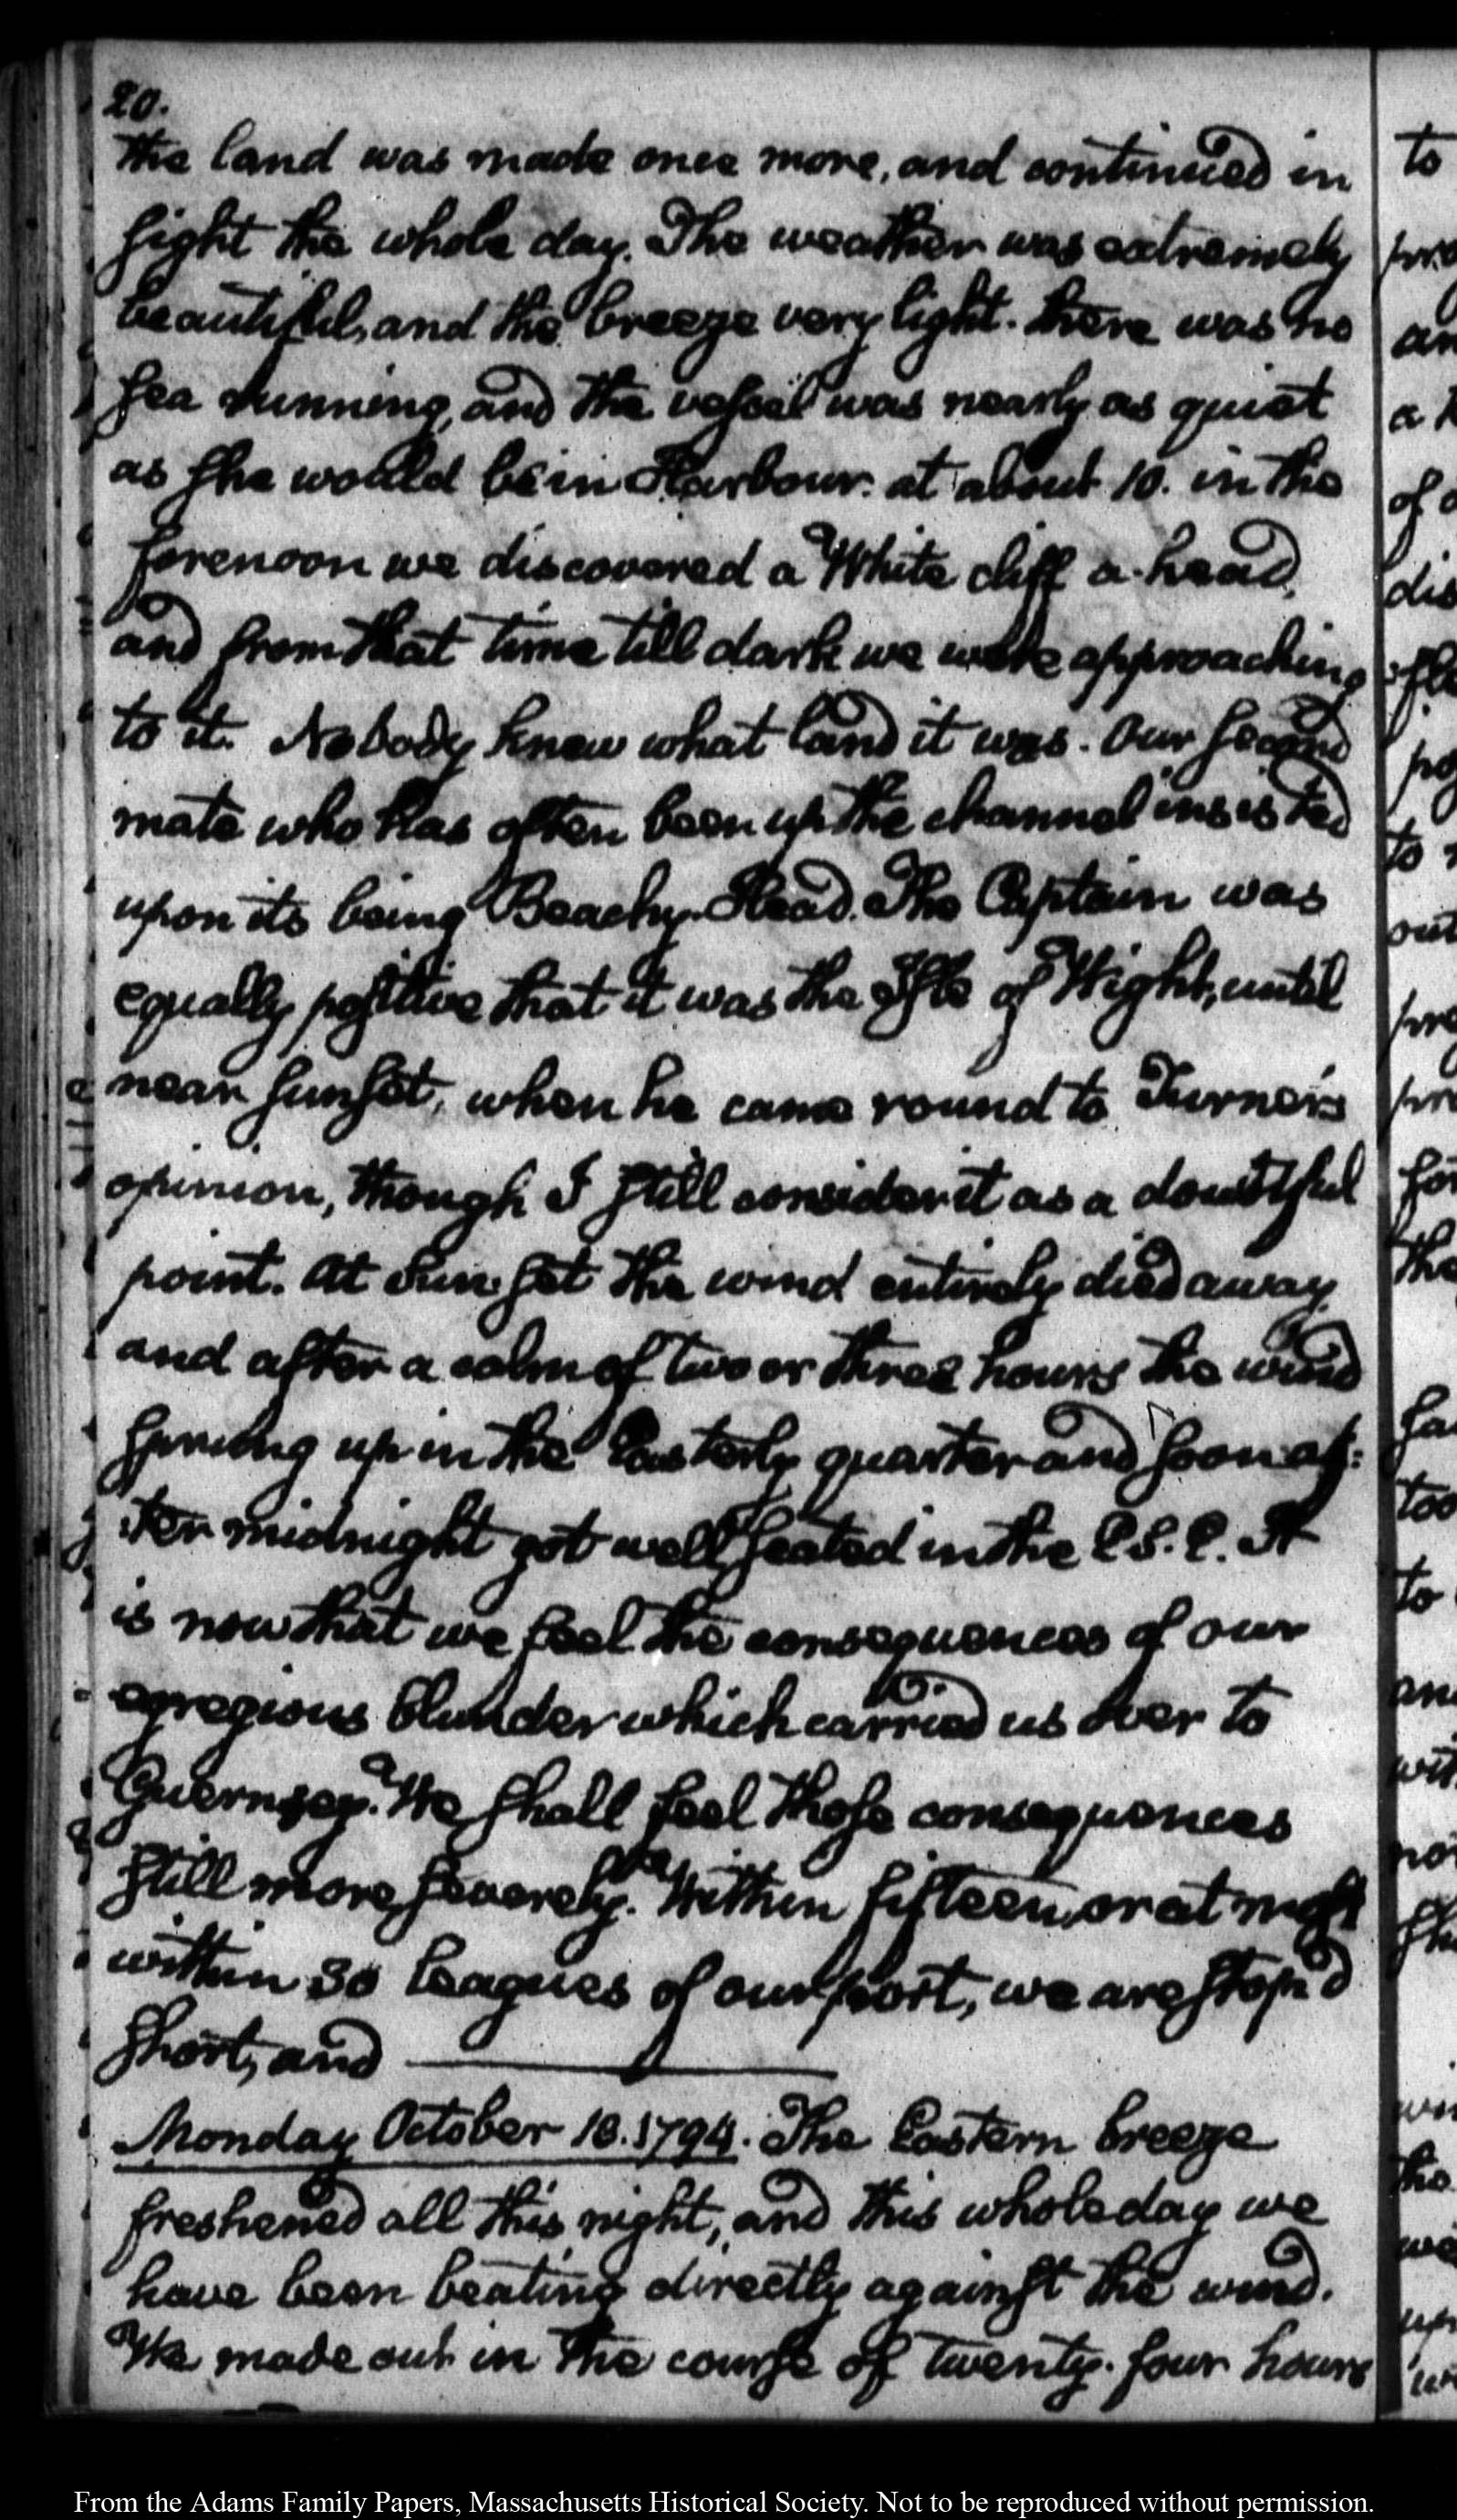 20.
the land was made once more, and continued in
sight the whole day. The weather was extremely
beautiful, and the breeze very light. there was no
sea running, and the vessel was nearly as quiet
as she would be in Harbour. at about 10. in the
forenoon we discovered a White cliff a-head,
and from that time till dark we were approaching
to it. Nobody knew what land it was. Our second
mate who has often been up the channel insisted
upon its being Beachy-Head. The Captain was
equally positive that it was the Isle of Wight, until
near sunset, when he came round to Turner's
opinion, though I still consider it as a doubtful
point. At Sun-set the wind entirely died away
and after a calm of two or three hours the wind
sprung up in the Easterly quarter and soon af:
:ter midnight got well seated in the E.S.E. It
is now that we feel the consequences of our
egregious blunder which carried us over to
Guernsey. We shall feel those consequences
still more severely. Within fifteen, or at most
within 30 leagues of our port, we are stop'd
short, and
Monday October 13. 1794. The Eastern breeze
freshened all this night, and this whole day we
have been beating directly against the wind.
We made out in the course of twenty-four hours
to
pro
an
a
of
dis
po
to
out
pre
for
the
too
to
and
wit
the
From the Adams Family Papers, Massachusetts Historical Society. Not to be reproduced without permission.